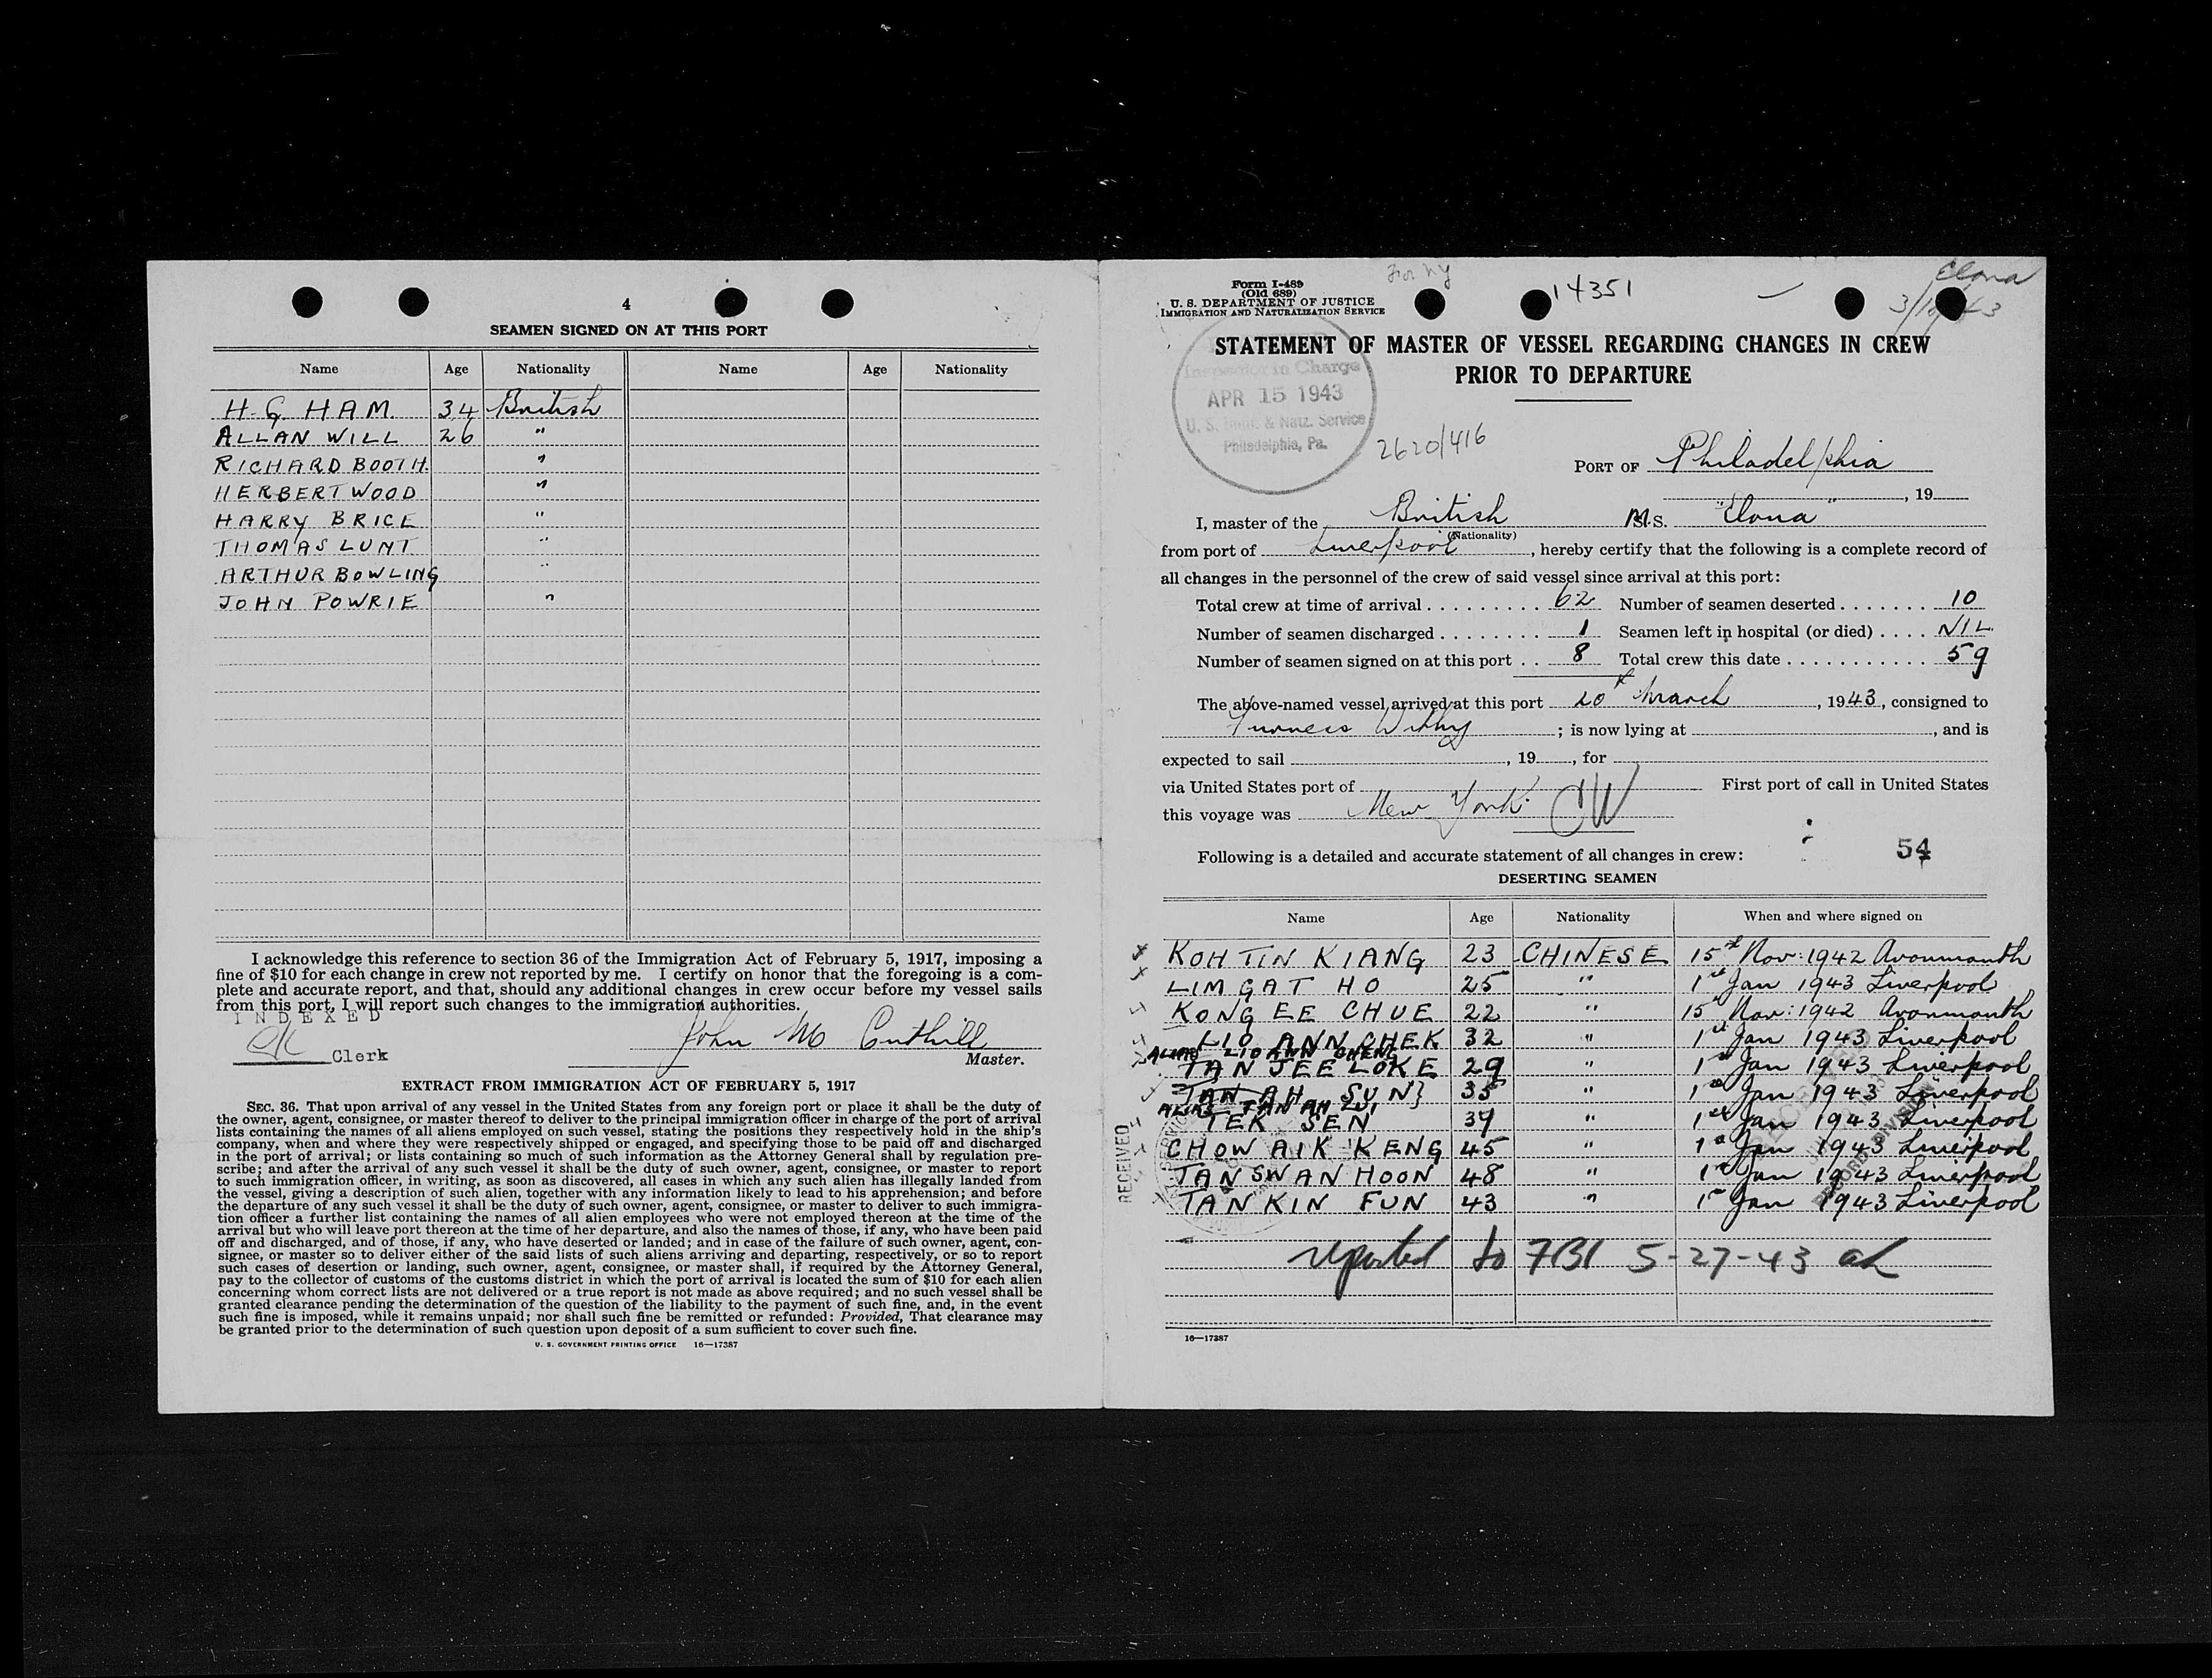 4
SEAMEN SIGNED ON AT THIS PORT
Name Age Nationality Name Age Nationality
H. G. HAM. 34 British
ALLAN WILL 26 "
RICHARD BOOTH. "
HERBERT WOOD "
HARRY BRICE "
THOMAS LUNT "
ARTHUR BOWLING "
JOHN POWRIE "
I acknowledge this reference to section 36 of the Immigration Act of February 5, 1917, imposing a
fine of $10 for each change in crew not reported by me. I certify on honor that the foregoing is a com-
plete and accurate report, and that, should any additional changes in crew occur before my vessel sails
from this port, I will report such changes to the immigration authorities.
INDEXED
Clerk
John Mc Cuthill
Master.
EXTRACT FROM IMMIGRATION ACT OF FEBRUARY 5, 1917
SEC. 36. That upon arrival of any vessel in the United States from any foreign port or place it shall be the duty of
the owner, agent, consignee, or master thereof to deliver to the principal immigration officer in charge of the port of arrival
lists containing the names of all aliens employed on such vessel, stating the positions they respectively hold in the ship's
company, when and where they were respectively shipped or engaged, and specifying those to be paid off and discharged
in the port of arrival; or lists containing so much of such information as the Attorney General shall by regulation pre-
scribe; and after the arrival of any such vessel it shall be the duty of such owner, agent, consignee, or master to report
to such immigration officer, in writing, as soon as discovered, all cases in which any such alien has illegally landed from
the vessel, giving a description of such alien, together with any information likely to lead to his apprehension; and before
the departure of any such vessel it shall be the duty of such owner, agent, consignee, or master to deliver to such immigra-
tion officer a further list containing the names of all alien employees who were not employed thereon at the time of the
arrival but who will leave port thereon at the time of her departure, and also the names of those, if any, who have been paid
off and discharged, and of those, if any, who have deserted or landed; and in case of the failure of such owner, agent, con-
signee, or master so to deliver either of the said lists of such aliens arriving and departing, respectively, or so to report
such cases of desertion or landing, such owner, agent, consignee, or master shall, if required by the Attorney General,
pay to the collector of customs of the customs district in which the port of arrival is located the sum of $10 for each alien
concerning whom correct lists are not delivered or a true report is not made as above required; and no such vessel shall be
granted clearance pending the determination of the question of the liability to the payment of such fine, and, in the event
such fine is imposed, while it remains unpaid; nor shall such fine be remitted or refunded: Provided, That clearance may
be granted prior to the determination of such question upon deposit of a sum sufficient to cover such fine.
U. S. GOVERNMENT PRINTING OFFICE 16—17387
Form I-489
(Old 689)
U. S. DEPARTMENT OF JUSTICE
IMMIGRATION AND NATURALIZATION SERVICE
For NY
14351
Elona
STATEMENT OF MASTER OF VESSEL REGARDING CHANGES IN CREW
PRIOR TO DEPARTURE
Inspector in Charge
APR 15 1943
U. S. Immi. & Natz. Service
Philadelphia, Pa.
2620/416
PORT OF Philadelphia
, 19
I, master of the British M.S. "Elona"
(Nationality)
from port of Liverpool , hereby certify that the following is a complete record of
all changes in the personnel of the crew of said vessel since arrival at this port:
Total crew at time of arrival . . . . . . . . . 62 Number of seamen deserted . . . . . . . 10
Number of seamen discharged . . . . . . . . 1 Seamen left in hospital (or died) . . . . NIL.
Number of seamen signed on at this port . . 8 Total crew this date . . . . . . . . . . . . 59
The above-named vessel arrived at this port 20th March , 1943, consigned to
Furness Withy ; is now lying at , and is
expected to sail , 19 , for
via United States port of First port of call in United States
this voyage was New York. CW
Following is a detailed and accurate statement of all changes in crew: 54
DESERTING SEAMEN
Name Age Nationality When and where signed on
KOH TIN KIANG 23 CHINESE 15th Nov: 1942 Avonmouth
LIM GAT HO 25 " 1st Jan 1943 Liverpool
KONG EE CHUE 22 " 15th Nov: 1942 Avonmouth
LIO ANN CHEK 32 " 1st Jan 1943 Liverpool
ALIAS LIO ANN CHENG
TAN JEE LOKE 29 " 1st Jan 1943 Liverpool
TAN AH SUN} 35 " 1st Jan 1943 Liverpool
ALIAS TAN AH LUI
TEK SEN 39 " 1st Jan 1943 Liverpool
CHOW AIK KENG 45 " 1st Jan 1943 Liverpool
TAN SWAN HOON 48 " 1st Jan 1943 Liverpool
TAN KIN FUN 43 " 1st Jan 1943 Liverpool
RECEIVED
reported to FBI 5-27-43
16—17387